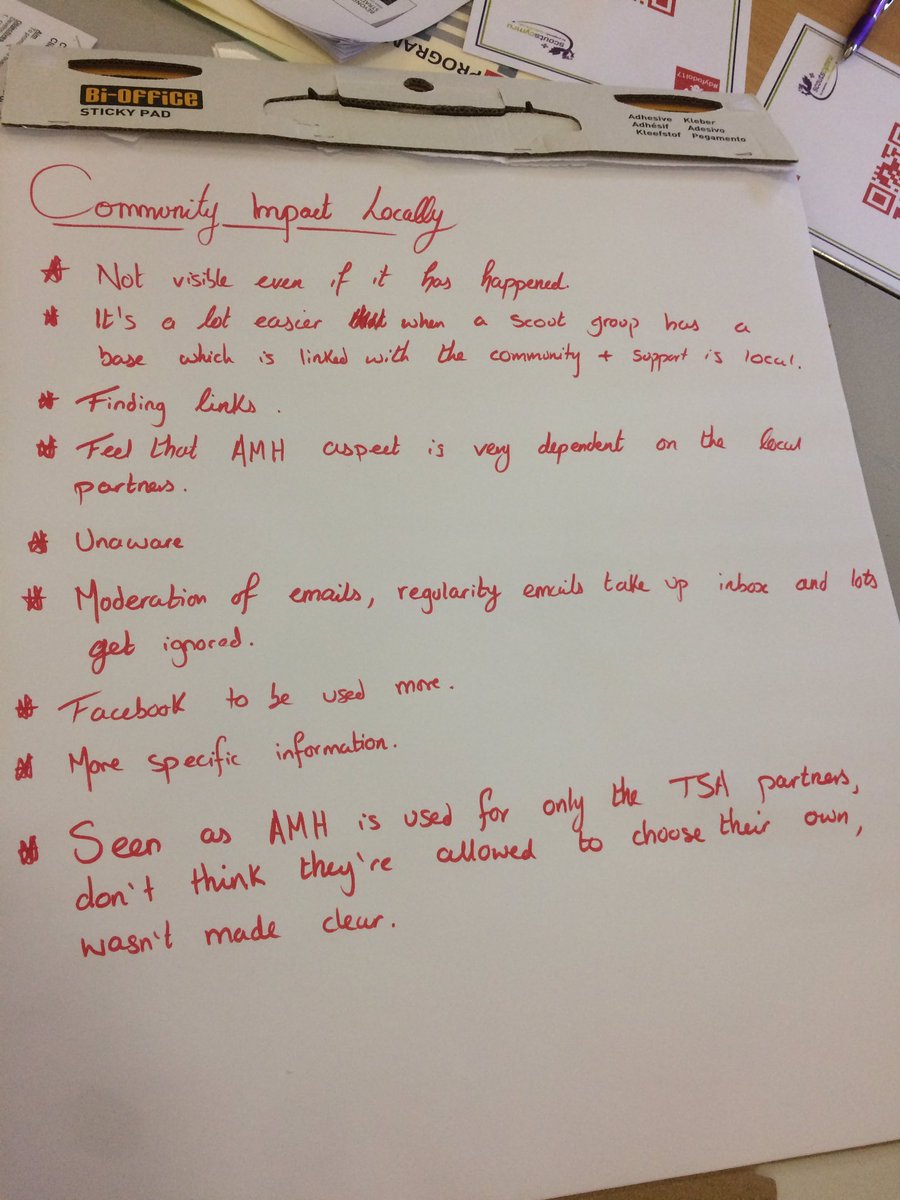 PROGRA
scoutscymru
#dyfodol17
scoutscymru
Bi-OFFiCE
STICKY PAD
Adhesive Kleber
Adhésif Adesivo
Kleefstof Pegamento
Community Impact Locally
Not visible even if it has happened.
It's a lot easier when a scout group has a
base which is linked with the community + support is local.
Finding links.
Feel that AMH aspect is very dependent on the local
partners.
Unaware
Moderation of emails, regularity emails take up inbox and lots
get ignored.
Facebook to be used more.
More specific information.
Seen as AMH is used for only the TSA partners,
don't think they're allowed to choose their own,
wasn't made clear.